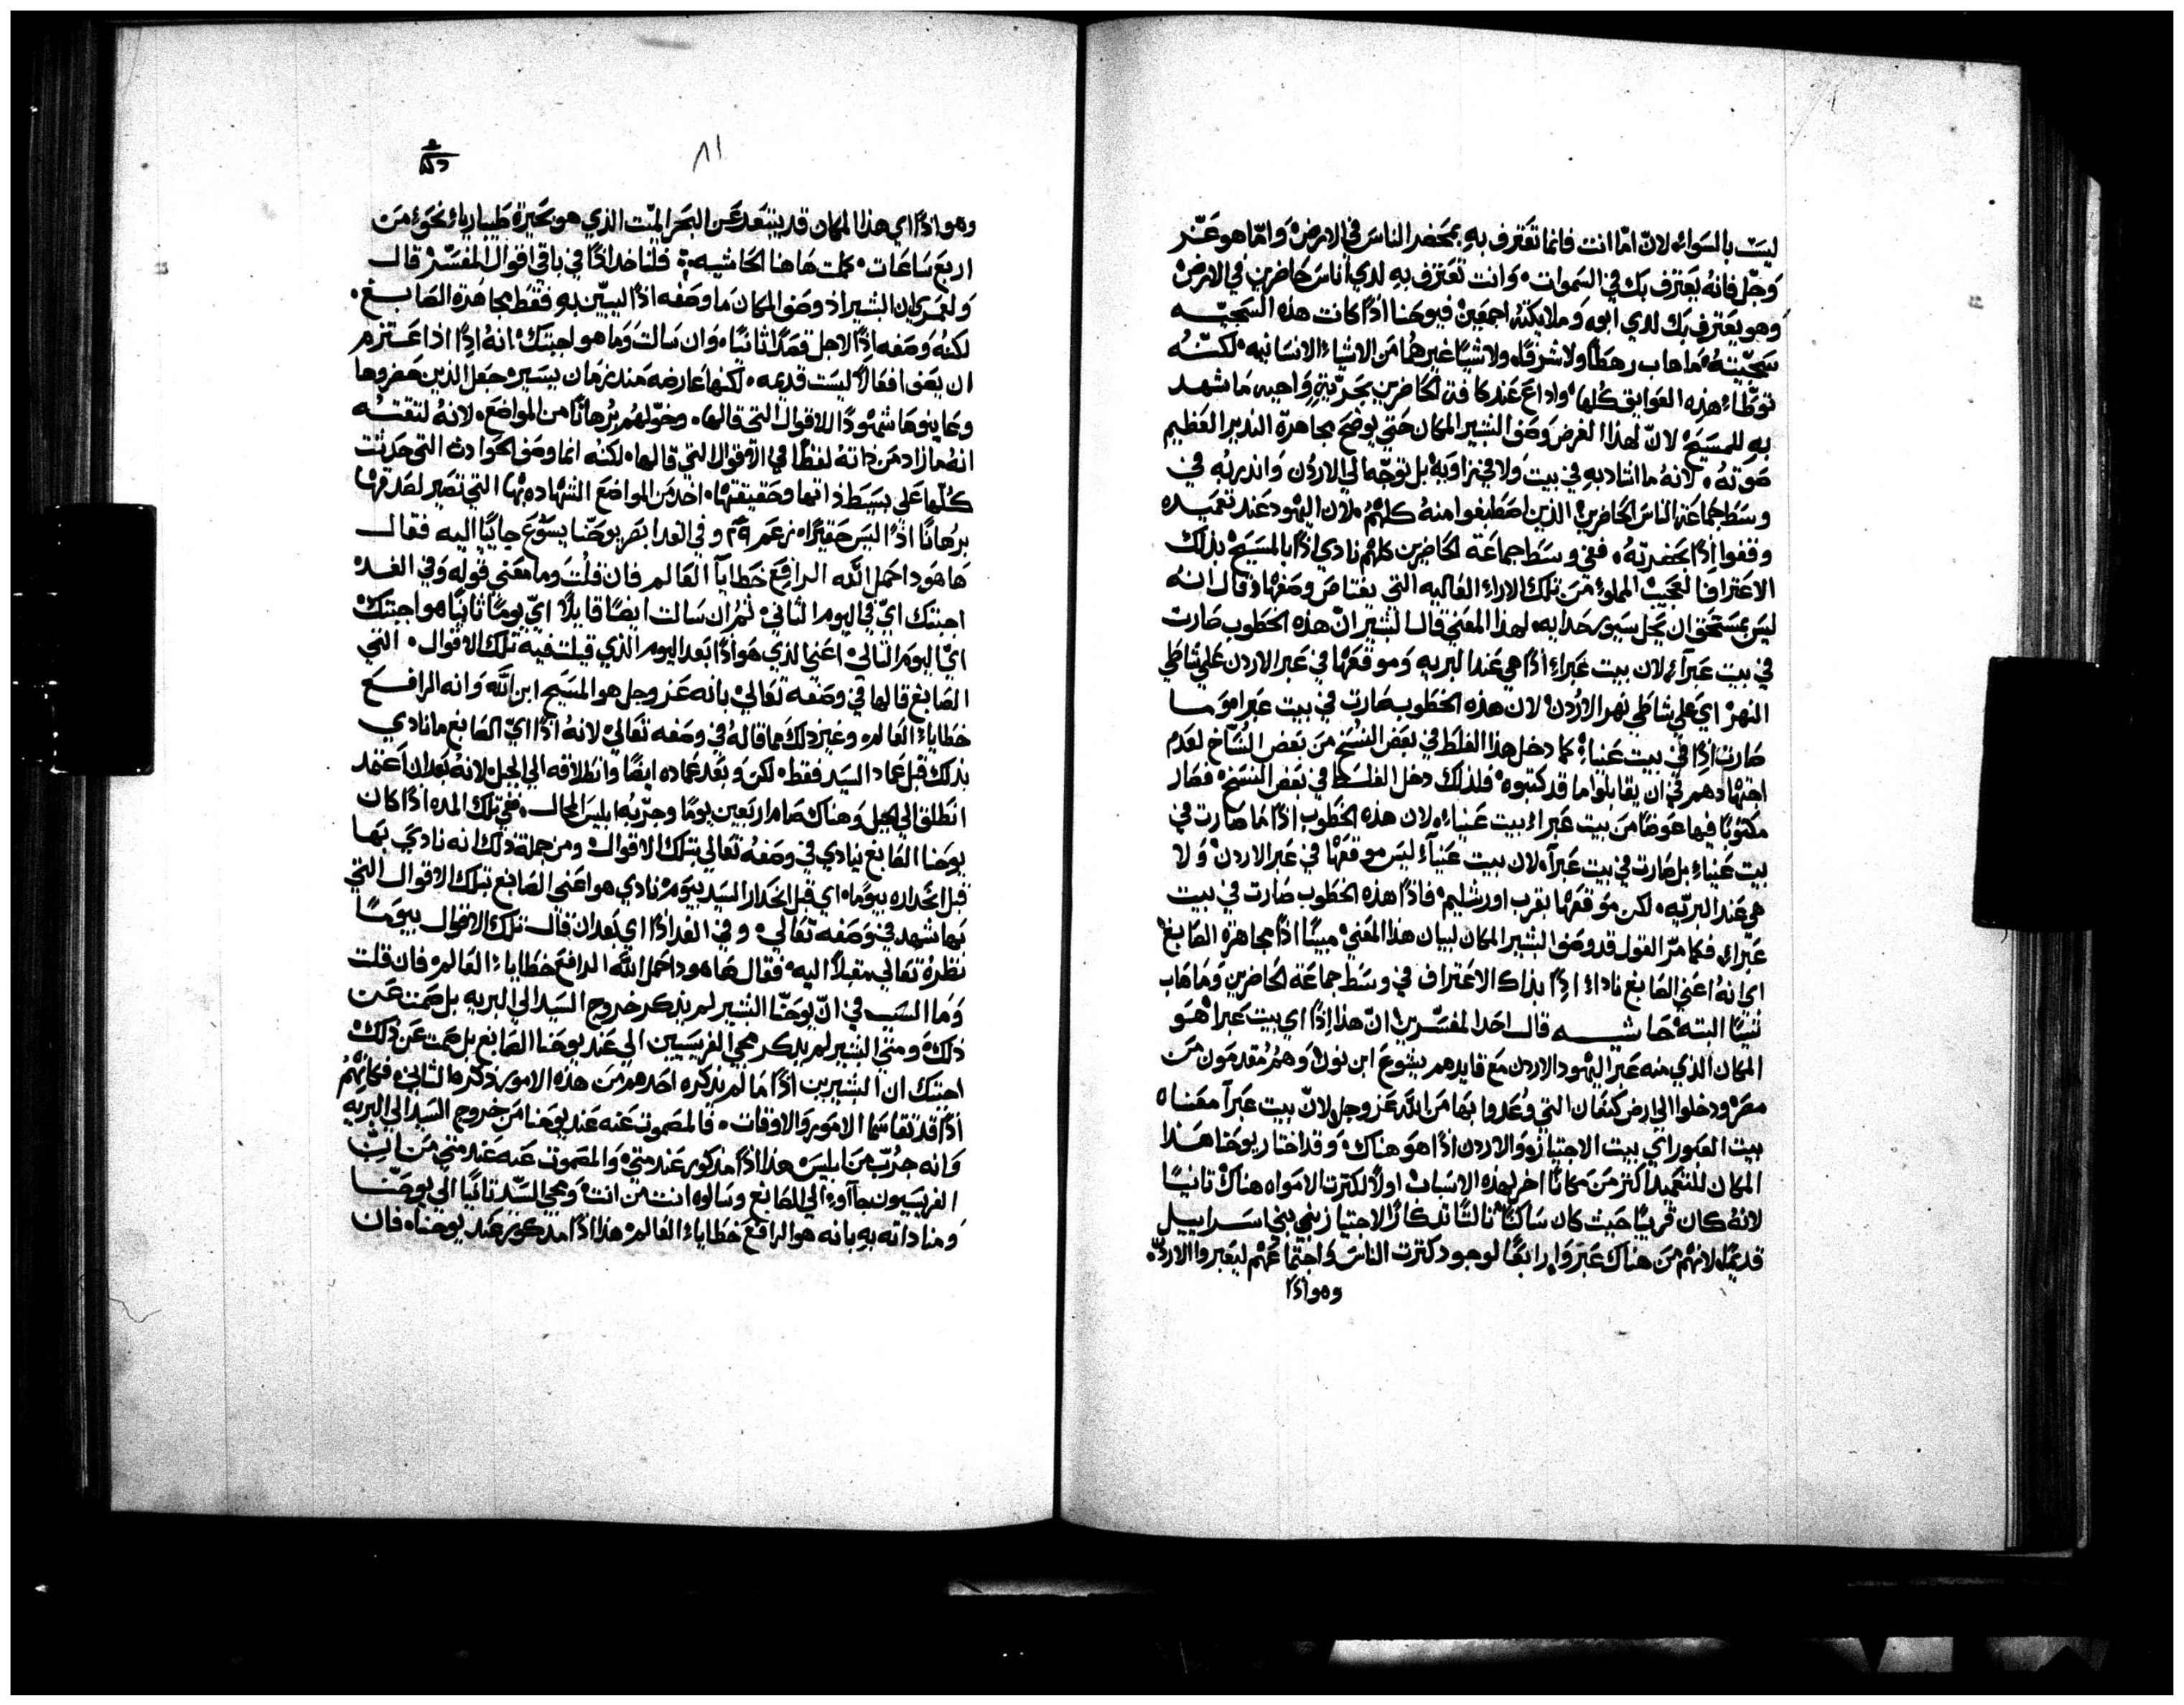 ليست بالسواء لان امّا انت فانما تعترف به بمحضر الناس في الارض وامّا هو عزّ
وجلّ فانه يعترف بك في السموات وانت تعترف به لدي اناس حاضرين في الارض
وهو يعترف بك لدي ابيه وملايكته اجمعين فيوحنا اذًا كانت هذه السجيّه
سجيّته ما هاب رهطًا ولا شرفًا ولا شيًا غيرهما من الاشياء الانسانيه لكنّه
توطّاء هذه العوايق كلها واداع عند كافة الحاضرين بحريّةٍ واجبه ما شهد
به للمسيح لانّ لهذا الغرض وصف البشير المكان حتي يوضح مجاهرة النذير العظيم
صوته لانه ما انادبه في بيت ولا في زاويه بل توجّه الي الاردن وانذر به في
وسط جماعة الناس الحاضرين الذين اصطبغوا منه كلهم لان اليهود عند تعميده
وقفوا اذًا بحضرته ففي وسط جماعة الحاضرين كلهم نادي اذًا بالمسيح بذلك
الاعتراف العجيب المملوء من تلك الاراء العاليه التي يعتاص وصفها اذ قال انه
ليس بمستحق ان يحل سيور حدايه لهذا المعني قال البشير انّ هذه الخطوب صارت
في بيت عبرآء لان بيت عبراء اذًا هي عند البريه وموقعها في عبر الاردن علي شاطي
النهر اي علي شاطي نهر الاردن لان هذه الخطوب صارت في بيت عبرا وما
صارت اذًا في بيت عنياء كما دخل هذا الغلط في بعض النسخ من بعض النساخ لعدم
اجتهادهم في ان يقابلوا ما قد كتبوه فلذلك دخل الغلط في بعض النسخ فصار
مكتوبًا فيها عوضًا من بيت عبراء بيت عنياء لان هذه الخطوب اذًا ما صارت في
بيت عنياء بل صارت في بيت عبرآء لان بيت عنيآء ليس موقعها في عبر الاردن ولا
هي عند البريّه لكن موقعها بقرب اورشليم فاذًا هذه الخطوب صارت في بيت
عبراء فكما مرّ القول قد وصف البشير المكان لبيان هذا المعني مبينًا اذًا مجاهرة الصابغ
اي انه اعني الصابغ ناداء اذًا بذاك الاعتراف في وسط جماعة الحاضرين وما هاب
شيًا البته حاشيه قال احد المفسّرين انّ هذا اذًا اي بيت عبرا هو
المكان الذي منه عبر اليهود الاردن مع قايدهم يشوع ابن نون وهم مقدمون من
مصر ودخلوا الي ارض كنعان التي وعدوا بها من الله عز وجل لانّ بيت عبرآ معناه
بيت العبور اي بيت الاجتيازه والاردن اذًا هو هناك وقد اختار يوحنا هذا
المكان للتعميد اكثر من مكانًا اخر لهذه الاسباب اولًا لكترت الامواه هناك ثانيًا
لانه كان قريبًا حيث كان ساكنًا ثالثًا تذكارًا لاجتياز بني بني اسراييل
قديمًا لانهم من هناك عبروا رابعًا لوجود كترت الناس واجتماعهم ليعبروا الاردن
وهو اذًا
٨١
وهو اذًا اي هذا المكان قد يبتعد عن البحر الميّت الذي هو بحيرة طيبارياء نحوء من
اربع ساعات كملت هاهنا الحاشيه فلناخد اذًا في باقي اقوال المفسّر قال
ولعمري ان البشير اذ وصف المكان ما وصفه اذًا ليبيّن به فقط مجاهرة الصابغ
لكنه وصفه اذًا لاجل قصدًا ثانيًا وان سالت وما هو اجبتك انه اذًا اذا عتزم
ان يصف افعالًا ليست قديمه لكنها عارضه منذ زمان يسير جعل الذين حضروها
وعاينوها شهودًا للاقوال التي قالها وخوّلهم برهانًا من المواضع لانه لتقته
انه ما زاد من داته لفظًا في الاقوال التي قالها لكنه انما وصف الحوادث التي حدثت
كلها علي بسيط ذاتها وحقيقتها اخذ من المواضع الشهاده بها التي تصير لصدقها
برهانًا اذًا ليس حقيرًا زعم ٢٩ وفي الغد ابصر يوحنّا يسوع جاييًا اليه فقال
ها هوذا حمل الله الرافع خطايا العالم فان قلت وما معني قوله وفي الغده
اجبتك ايّ في اليوم الثاني ثم ان سالت ايضًا قايلًا ايّ يومًا ثانيًا هو اجبتك
ايّ اليوم التالي اعني الذي هو اذًا بعد اليوم الذي قيلت فيه تلك الاقوال التي
الصابغ قالها في وصفه تعالي بانه عز وجل هو المسيح ابن الله وانه الرافع
خطاياء العالم وغير ذلك مما قاله في وصفه تعالي لانه اذًا ايّ الصابغ ما نادي
بذلك قبل عماد السيد فقط لكن وبعد عماده ايضًا وانطلاقه الي الجبل لانه بعد ان اعتمد
انطلق الي الجبل وهناك صام اربعين يومًا وجرّبه ابليس المحال ففي تلك المده اذًا كان
يوحنا الصابغ ينادي في وصفه تعالي بتلك الاقوال ومن جملة ذلك انه نادي بها
قبل انحداره بيومًا اي قبل انحدار السيد بيوم نادي هو اعني الصابغ بتلك الاقوال التي
بها شهد في وصفه تعالي وفي الغد اذًا اي بعد ان قال تلك الاقوال بيومًا
نظره تعالي مقبلًا اليه فقال ها هوذا حمل الله الرافع خطاياء العالم فان قلت
وما السبب في انّ يوحنّا البشير لم يذكر خروج السيد الي البريه بل صمت عن
ذلك ومتي البشير لم يذكر مجي الفريسيين الي عند يوحنا الصابغ بل صمت عن ذلك
اجبتك ان البشيرين اذًا ما لم يذكره احدهم من هذه الامور ذكره الثاني فكانهم
اذًا قد تقاسما الامور والاوقات فالمصموت عنه عند يوحنا من خروج السيد الي البريه
وانه جُرّب من ابليس هذا اذًا مذكور عند متي والمصموت عنه عند متي من انّ
الفريسيون جآاوء الي الصابغ وسالوه انت من انت ومجي السّيد ثانيًا الي يوحنّا
ومناداته به بانه هو الرافع خطاياء العالم هذا اذًا مذكور عند يوحنا فان